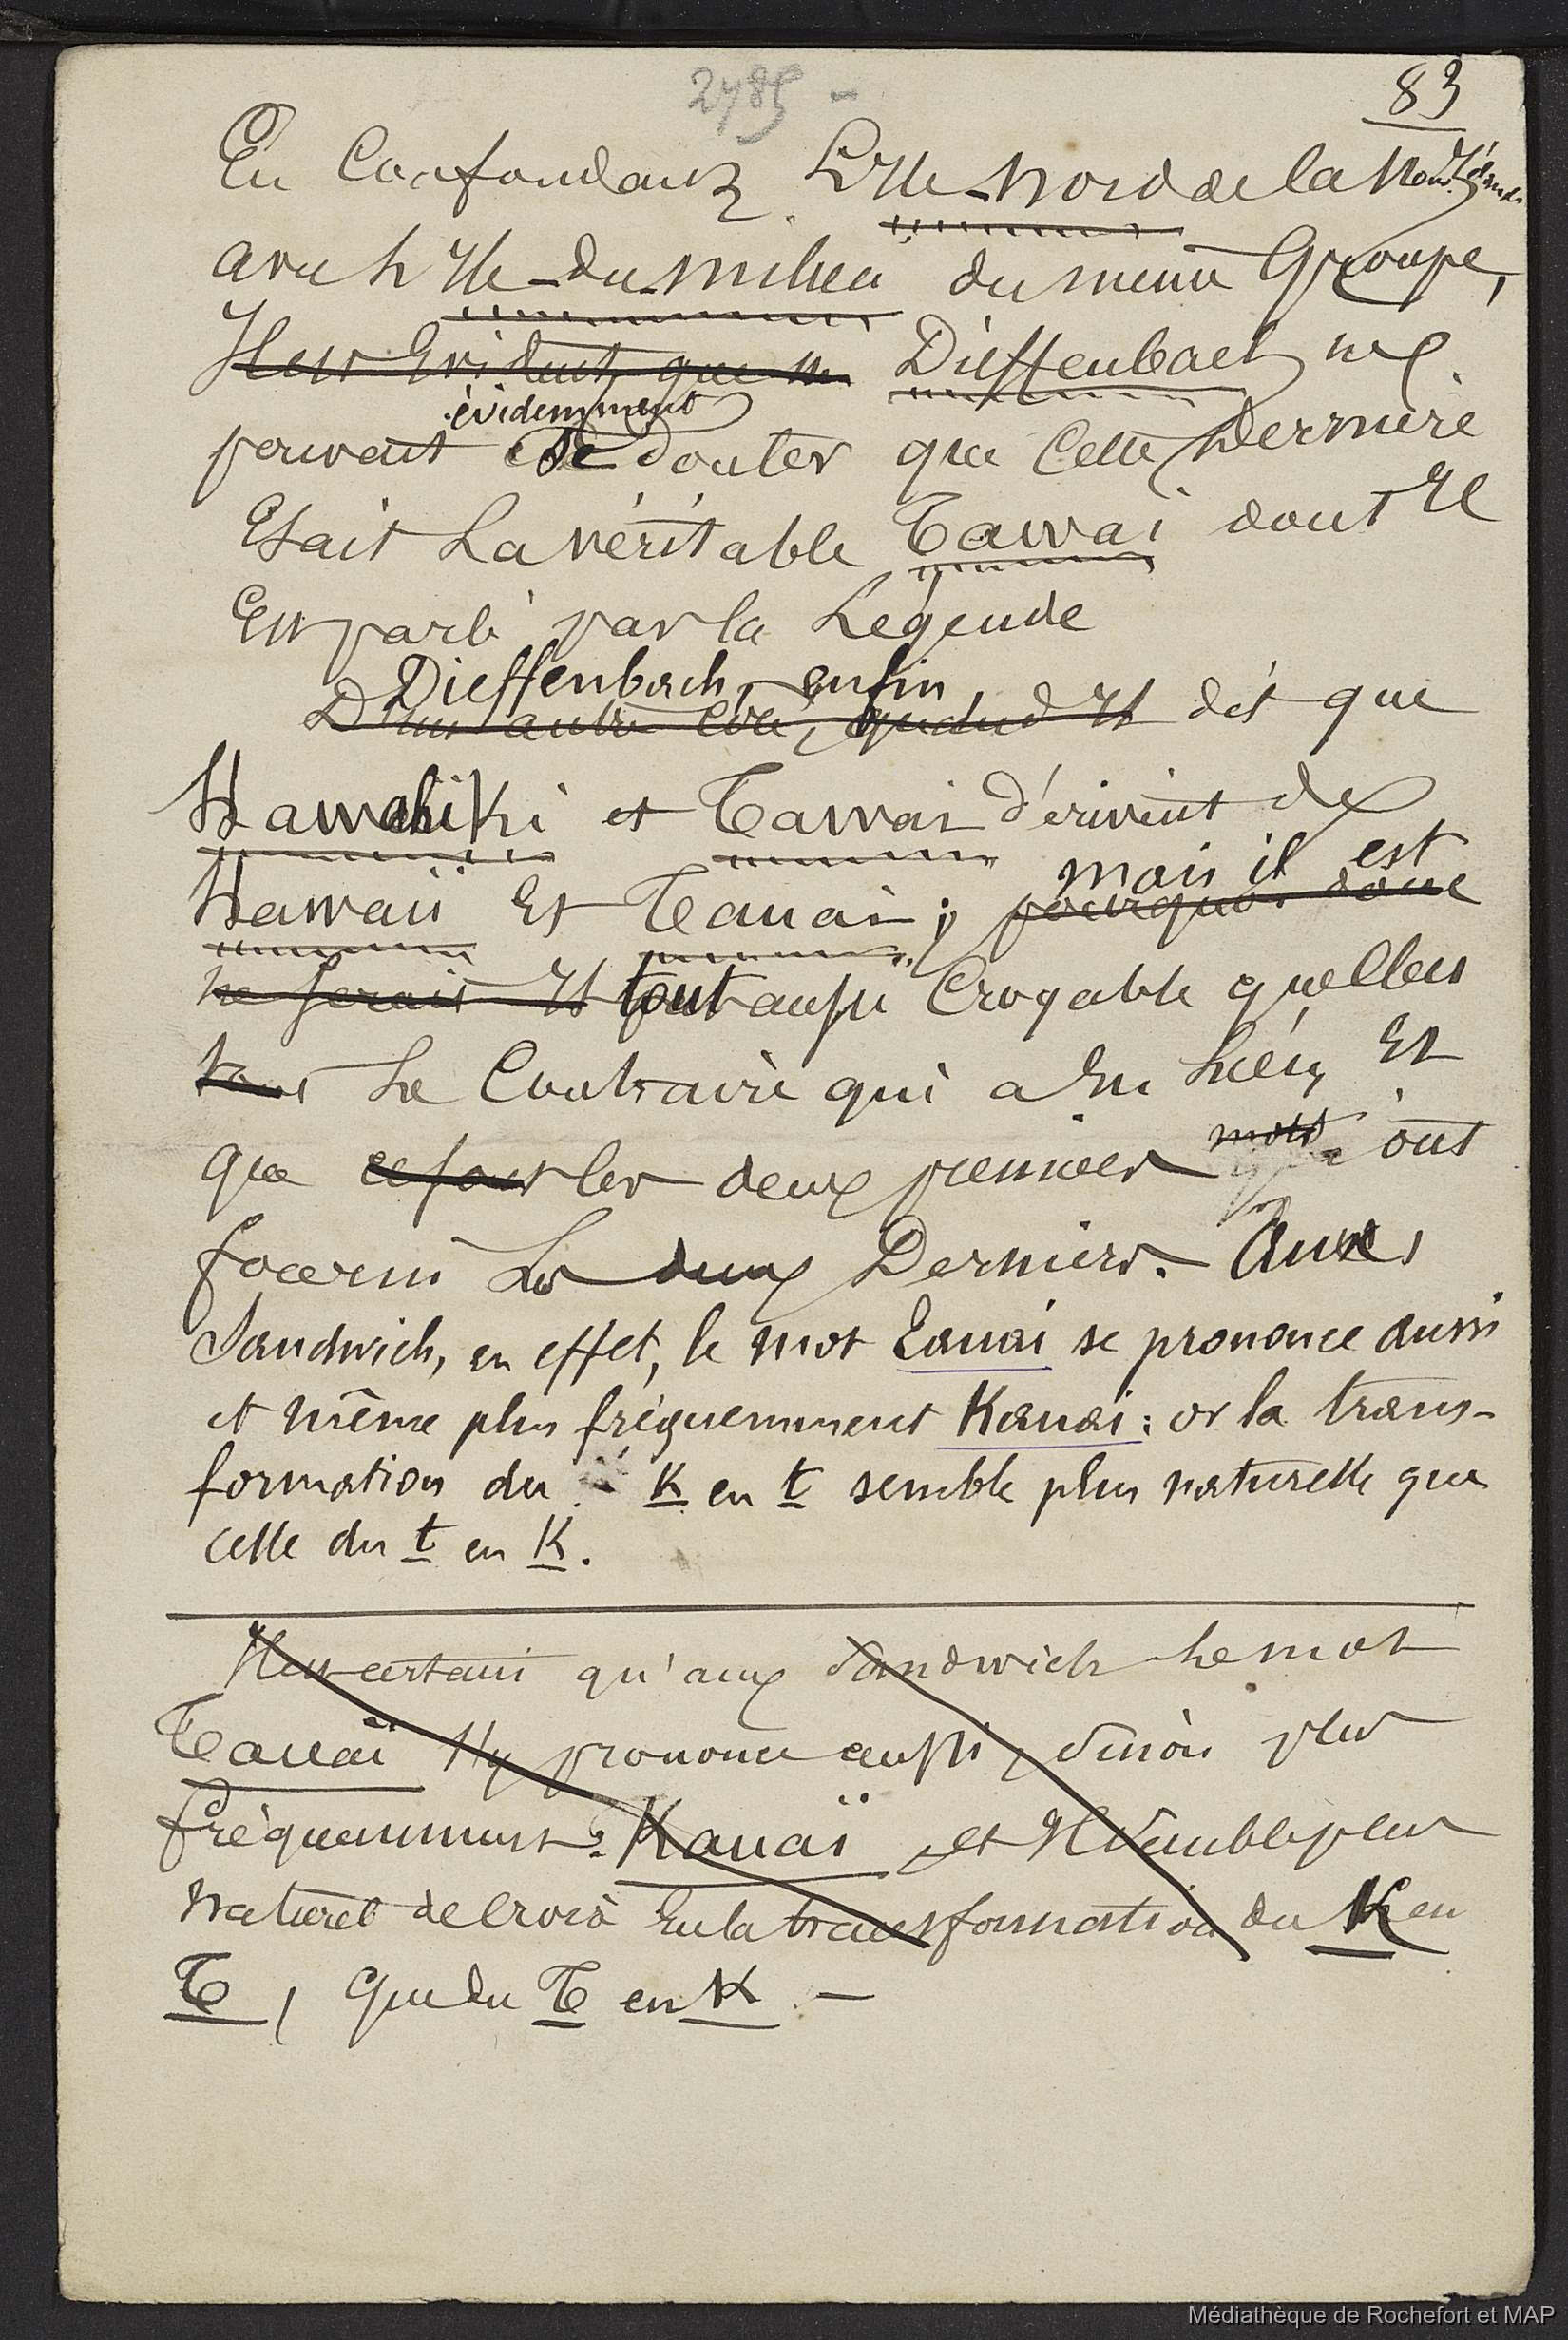 2785 -
83
En Confondant L'Ile-Nord de la Nou. Zélande
avec L'Ile-du-milieu du même Groupe,
Il est Evident que M. Dieffenbach ne
évidemment
pouvait se douter que Cette Dernière
Etait La véritable Tawaï dont Il
Est parlé par la Légende
Dieffenbach, enfin,
D'un autre côté, quand Il dit que
Hawahiki et Tawai dérivent de
mais il est
Hawaii Et Tauai; pourquoi donc
ne serait Il tout aussi Croyable qu'elles
Le Contraire qui a Eu Lieu, Et
mots
que ce sont les deux premiers ont
fourni Les deux Derniers. Aux
Sandwich, en effet, le mot Tauai se prononce aussi
et même plus fréquemment Kauai : or la trans-
formation du k en t semble plus naturelle que
celle du t en K.
Il est certain qu'aux Sandwich Le mot
Tauaï s'y prononce aussi, sinon plus
fréquemment Kauaï et Il semble plus
Naturel de croire En la transformation du K en
T, que du T en K —
Médiathèque de Rochefort et MAP